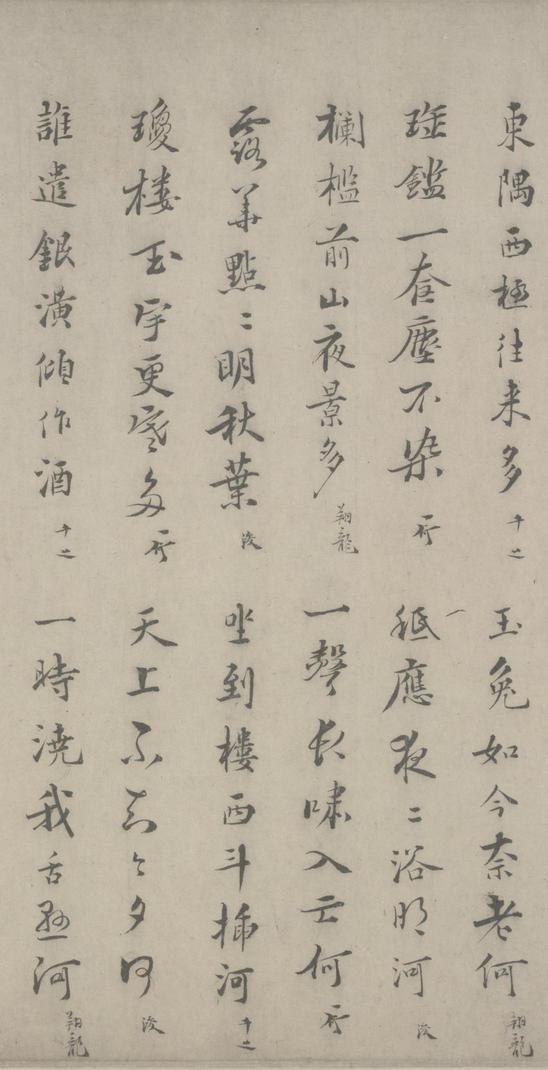 東隅西極往来多 十之 玉兔如今奈老何 翔龍
珎鑑一奩塵不染 一所 秪應夜〻浴明河 浚
欄檻前山夜景多 翔龍 一聲長嘯入云何 一所
露華點〻明秋葉 浚 坐到樓西斗插河 十之
瓊楼玉宇更寒多 一所 天上不知今夕何 浚
誰遣銀潢傾作酒 十之 一時澆我舌懸河 翔龍